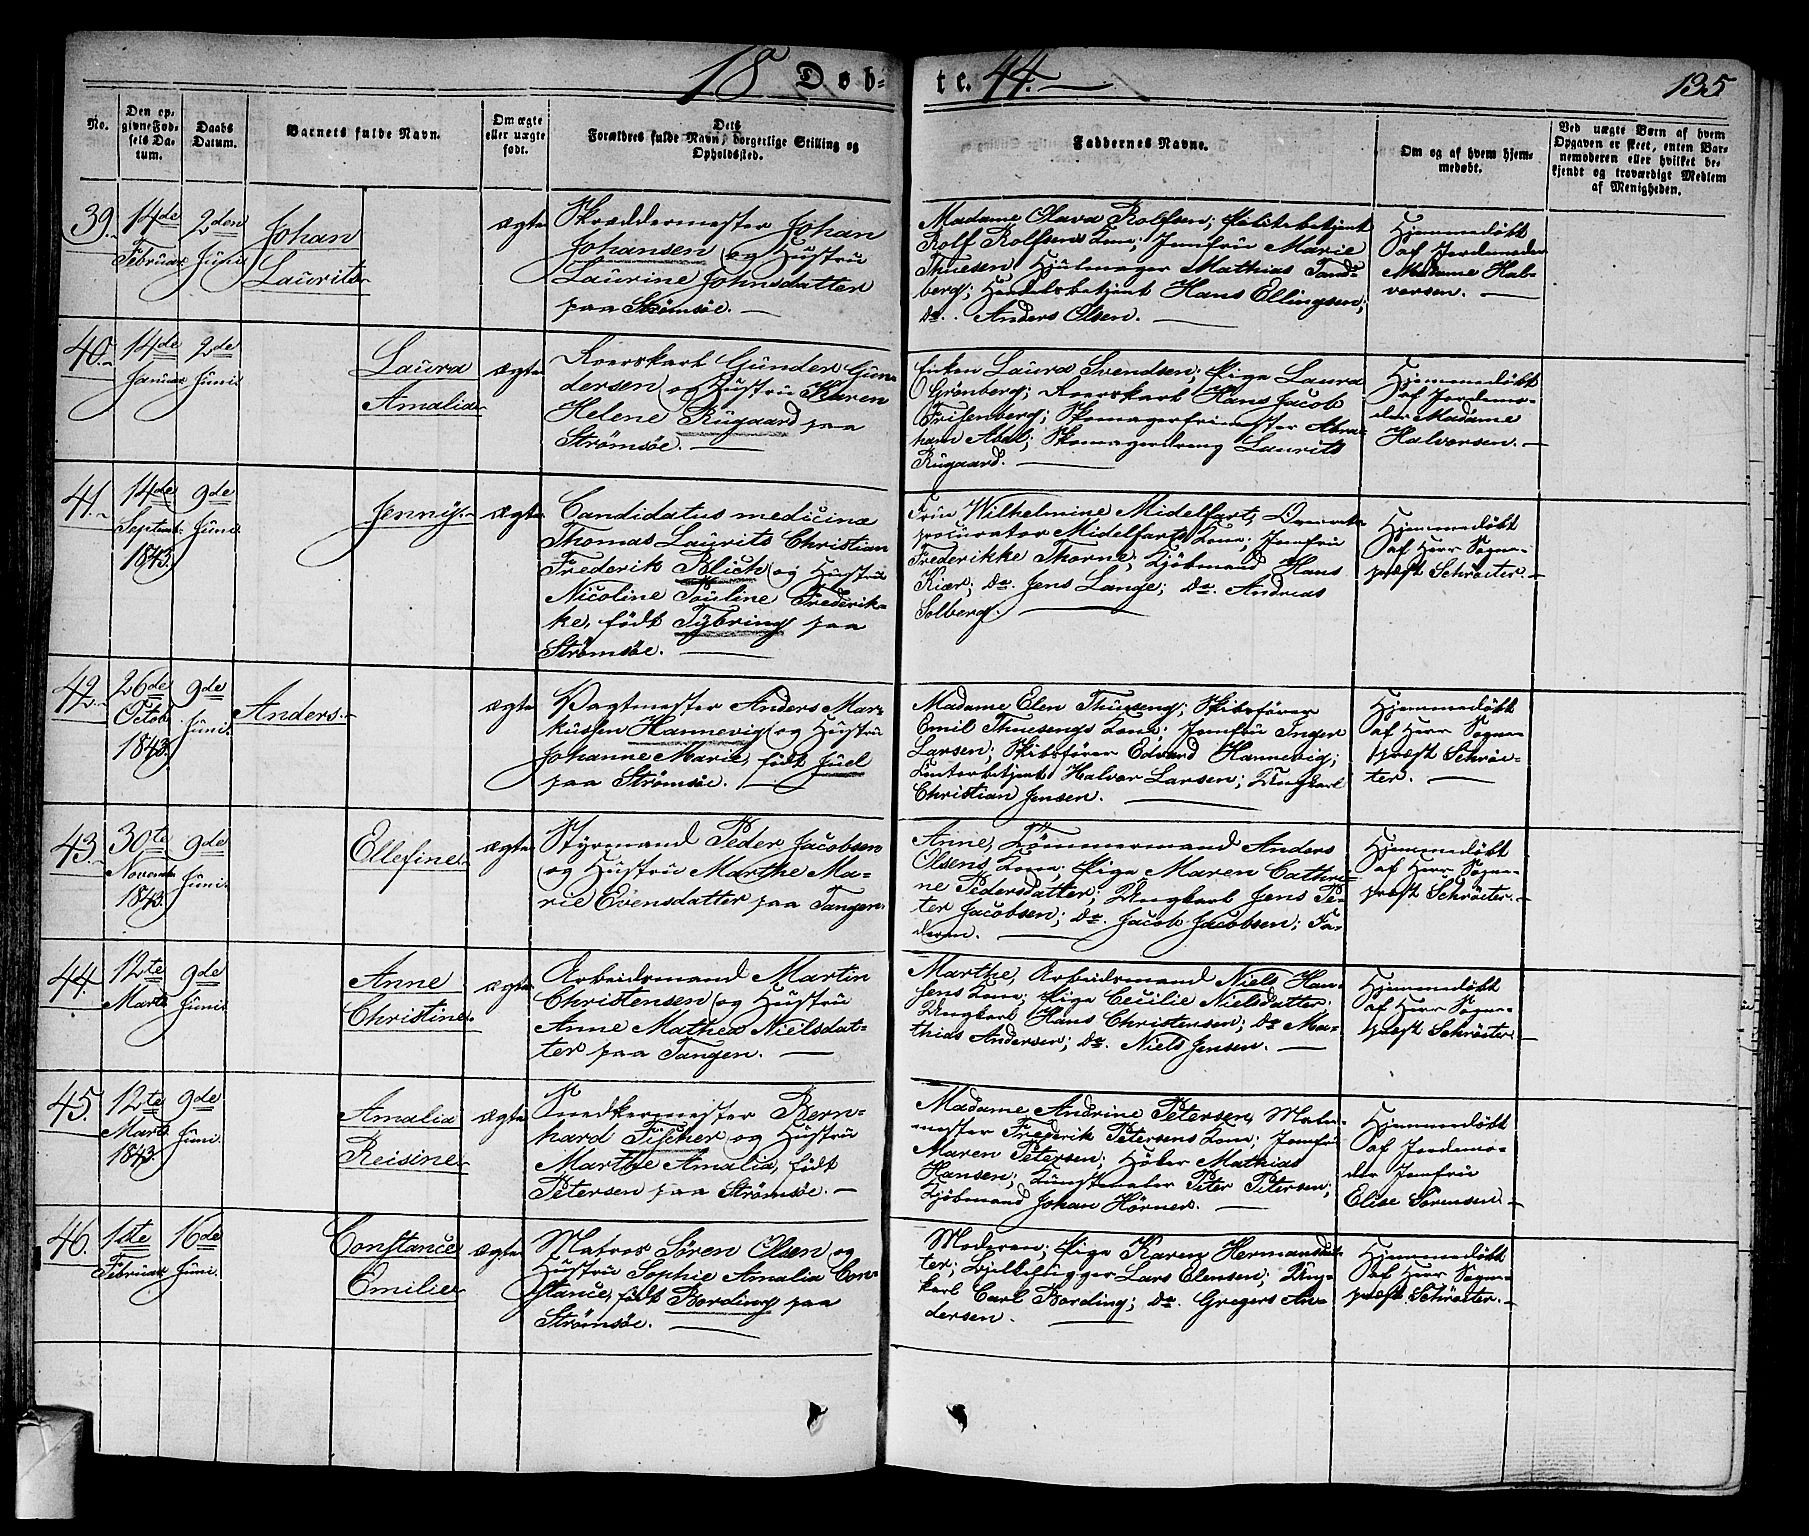 18 Døb-
te. 44.
135
No.
Den op-
givne Fød-
sels Da-
tum.
Daabs
Datum.
Barnets fulde Navn.
Om ægte
eller uægte
født.
Dets
Forældres fulde Navn, borgerlige Stilling og
Opholdssted.
Faddernes Navne.
Om og af hvem hjem-
medøbt.
Ved uægte Børn af hvem
Opgaven er skeet, enten Bar-
nemoderen eller hvilket be-
kjendt og troværdigt Medlem
af Menigheden.
39.
14de
Februar
2den
Juni
Johan
Laurits
ægte
Skræddermester Johan
Johansen og Hustru
Laurine Johnsdatter
paa Strømsøe.
Madame Olava Rolfsen, Politiebetjent
Rolf Rolfsens Kone; Jomfrue Marie
Thuesen, Hjulmager Mathias Tand-
berg; Handelsbetjent Hans Ellingsen;
Do. Anders Olsen.
Hjemmedøbt
af Jordemoder
Madame Hal-
vorsen.
40.
14de
Januar
2de
Juni
Laura
Amalia
ægte
Roerskarl Gunder Gun-
dersen og Hustru Karen
Helene Rugaard paa
Strømsøe.
Enken Laura Svendsen; Pige Laura
Grønberg; Roerskarl Hans Jacob
Frisenberg; Skomagerfrimester Abra-
ham Abel; Skomagerdreng Laurits
Rugaard.
Hjemmedøbt
af Jordemo-
der Madame
Halvorsen.
41.
14de
Septmb.
1843.
9de
Juni
Jenny.
ægte
Candidatus medicinæ
Thomas Laurits Christian
Frederik Blich og Hustru
Nicoline Pouline Frederik-
ke, født Tybring paa
Strømsøe.
Frue Wilhelmine Midelfart, Overrets-
procurator Midelfarts Kone; Jomfru
Frederikke Thorne, Kjøbmand Hans
Kiær; Do. Jens Lange; Do. Andreas
Solberg.
Hjemmedøbt
af Herr Sogne-
præst Schröeter.
42.
26de
Octob.
1843.
9de
Juni.
Anders.
ægte
Vagtmester Anders Mar-
kussen Hannevig og Hustru
Johanne Marie, født Juel
paa Strømsøe.
Madame Elen Thueseng; Skibsfører
Emil Thuesengs Kone; Jomfru Inger
Larsen; Skibsfører Edvard Hannevig;
Contorbetjent Halvor Larsen; Ungkarl
Christian Jensen.
Hjemmedøbt
af Herr Sogne-
præst Schröe-
ter.
43.
30te
Novemb.
1843.
9de
Juni.
Ellefine.
ægte
Styrmand Peder Jacobsen
og Hustru Marthe Ma-
rie Evensdatter paa Tangen.
Anne, Tømmermand Anders
Olsens Kone; Pige Maren Cathri-
ne Pedersdatter; Ungkarl Jens Pe-
ter Jacobsen; Do. Jacob Jacobsen; Fa-
deren.
Hjemmedøbt
af Herr Sogne-
præst Schröeter.
44.
12te
Marts
9de
Juni.
Anne
Christine.
ægte
Arbeidsmand Martin
Christensen og Hustru
Anne Mathea Nielsdat-
ter paa Tangen.
Marthe, Arbeidsmand Niels Han-
sens Kone; Pige Cecilie Nielsdatter;
Ungkarl Hans Christensen; Do Ma-
thias Andersen; Do. Niels Jensen.
Hjemmedøbt
af Herr Sogne-
præst Schröeter.
45.
12te
Marts
1843.
9de
Juni.
Amalia
Reisine.
ægte
Snedkermester Bern-
hard Fischer og Hustru
Marthe Amalia, født
Petersen paa Strømsøe.
Madame Andrine Petersen, Maler-
mester Frederik Petersens Kone; Jomfru
Maren Petersen; Høker Mathias
Hansen; Kunstmaler Peter Petersen;
Kjøbmand Johan Hörner.
Hjemmedøbt
af Jordemo-
der Jomfru
Elise Sörensen.
46.
1ste
Februar
16de
Juni.
Constance
Emilie.
ægte
Matros Søren Olsen og
Hustru Sophie Amalia Con-
stance, født Bording paa
Strømsøe.
Moderen; Pige Karen Hermansdat-
ter; Lars Elensen; Ung-
karl Carl Bording; Do. Gregers An-
dersen.
Hjemmedøbt
af Herr Sogne-
præst Schröeter.